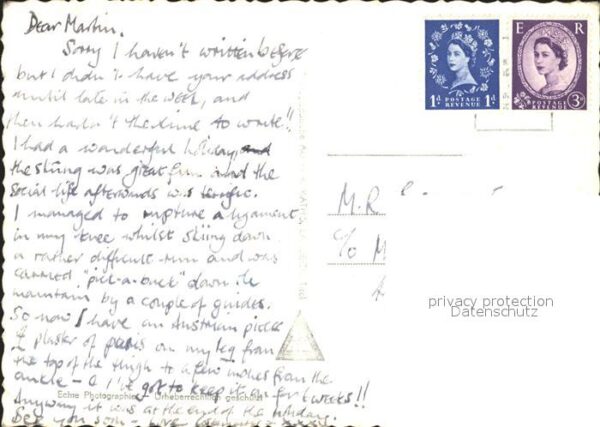 Dear Martin,
Sorry I haven't written before
but I didn't have your address
until late in the week, and
then hadn't the time to write!!
I had a wonderful holiday, and
the skiing was great fun and the
social life afterwards was terrific.
I managed to rupture a ligament
in my knee whilst skiing down
a rather difficult run and was
carried "pick-a-back" down the
mountain by a couple of guides.
So now I have an Austrian piece
of plaster of paris on my leg from
the top of the thigh to a few inches from the
ankle - & I've got to keep it on for 6 weeks!!
Anyway it was at the end of the holiday.
See you soon - love
Echte Photographie Urheberrechtlich geschützt
1d POSTAGE REVENUE 1d
E R
POSTAGE REVENUE 3d
M.R
c/o M
privacy protection
Datenschutz